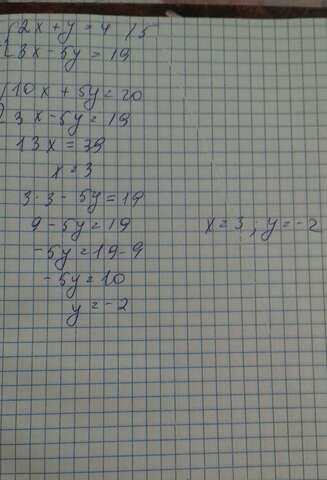 {2x+y=4 /5
{3x-5y=19
{10x+5y=20
3x-5y=19
13x=39
x=3
3·3-5y=19
9-5y=19
-5y=19-9
-5y=10
y=-2
x=3; y=-2